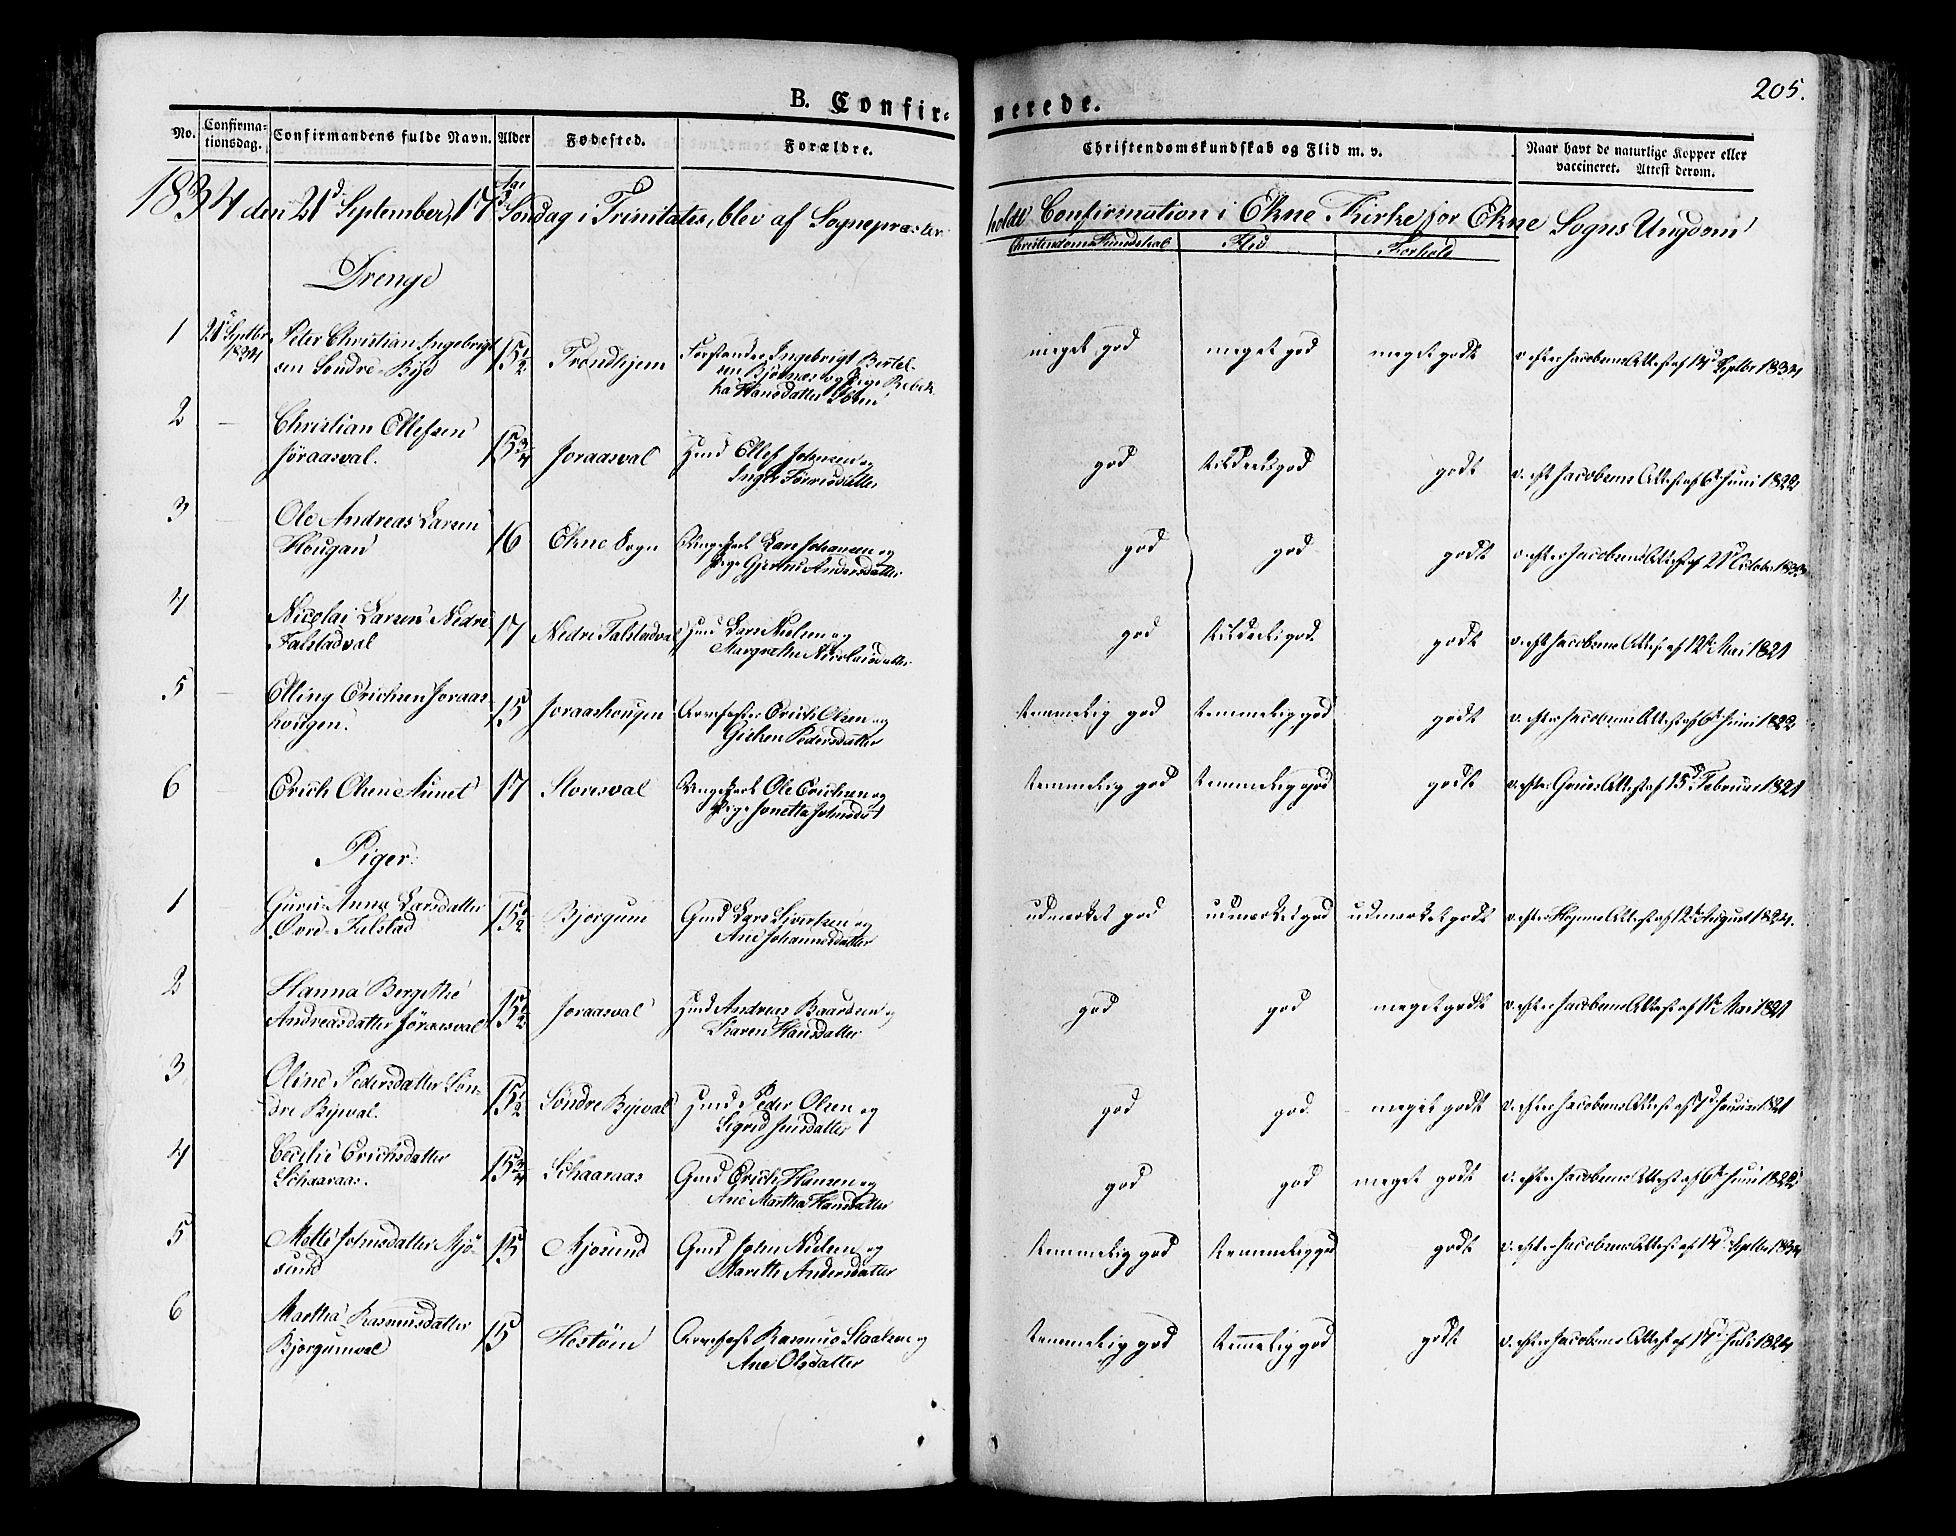 205.
B. Confirmerede.
No. Confirmationsdag. Confirmandens fulde Navn. Alder Fødested. Forældre. Christendomskundskab og Flid m. v. Naar havt de naturlige Kopper eller vaccineret. Attest derom.
1834 den 21d September, 17d Søndag i Trinitatis, blev af Sognepræsten holdt Confirmation i Ekne Kirke for Ekne Sogns Ungdom
Christendoms Kundskab Flid Forhold
Drenge
1 21d Septbr 1834 Peter Christian Ingebrigt
sen Søndre-Bye 15 1/2 Trondhjem Forstander Ingebrigt Bertel-
sen Bjørnes og Pige Rebek
ka Hansdatter Iben
meget god meget god meget godt v. efter Jacobsens Attest af 14d Septbr 1834
2 Christian Ellefsen
Joraasval. 15 3/4 Joraasval Hmd Ellef Johnsen og
Inger
god god godt v. eft Jacobsens Attest af 6t Juni 1822
3 Ole Andreas Larsen
Hougan 16 Ekne Sogn Ungekarl Lars Johansen og
Pige Andersdatter
god god godt v. efter Jacobsens Attest af 21d October
4 Nicolai Larsen Nedre
Falstadval 17 Nedre Falstadval Hmd Lars Nielsen og
Margrethe Nicolaisdatter
god god godt v. eft Jacobsens Attest af 12t Mai 1821
5 Elling Erichsen Joraas
hougen. 15 Joraashougen Arvefæster Erich Olsen og
Gicken Pedersdatter
temmelig god temmelig god godt v. efter Jacobsens Attest af 6t Juni 1822
6 Erich Olsen Aunet 17 Storesval Ungekarl Ole Erichsen og
Pige Jonetta Johnsdat
temmelig god temmelig god godt v. efter Attest af 15d Februar 1821
Piger.
1 Guru-Anna Larsdatter
Øvre-Falstad 15 1/2 Bjørgum Gmd Lars Sivertsen og
Ane Johannesdatter
udmærket god udmærket god udmærket godt v. efter Attest af 12t August 1824.
2 Hanna Bergitthe
Andreasdatter Joraasval 15 1/2 Joraasval Hmd Andreas Baardsen og
Karen Hansdatter
god god meget godt v. efter Jacobsens Attest af Mai 1821
3 Oline Pedersdatter Søn-
dre Byeval. 15 1/2 Søndre Byeval Hmd Peder Olsen og
Sigrid Jensdatter
god god. meget godt v. efter Jacobsens Attest af 1821
4 Cecilie Erichsdatter
Schaaraas. 15 3/4 Schaaraas Gmd Erich Hansen og
Ane Martha Hansdatter
god god meget godt v. efter Jacobsens Attest af 6t Juni 1822
5 Mette Johnsdatter Mjø-
sund 15 Mjosund Gmd John Nielsen og
Marethe Andersdatter
temmelig god temmelig god godt v. efter Jacobsens Attest af 14d Septbr 1834
6 Martha Rasmusdatter
Bjørgumval 15 Hestøen Arvefæst Rasmus Staalsen og
Ane Olsdatter
temmelig god temmelig god godt v. efter Jacobsens Attest af 17d Juli 1824